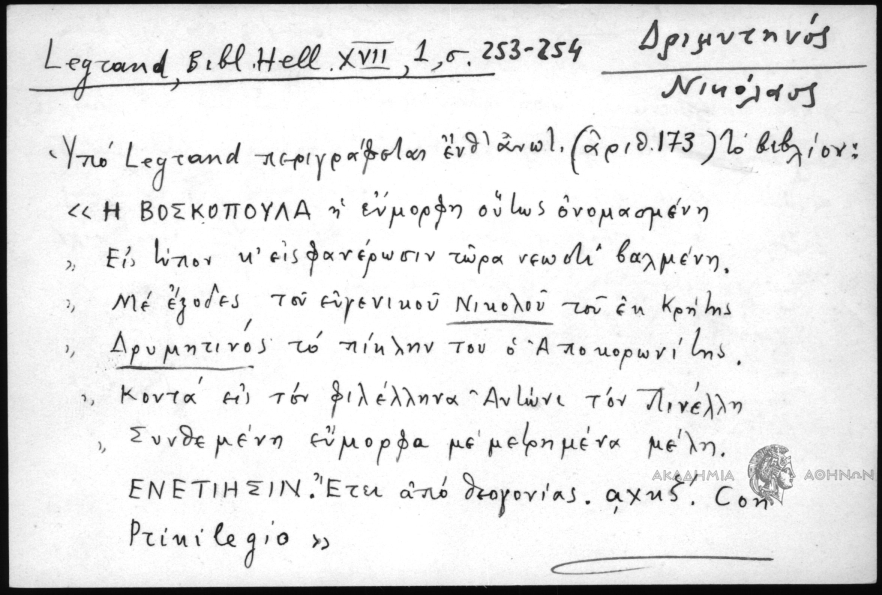 Legrand, Bibl. Hell. XVII, 1, σ. 253-254
Δριμυτηνός
Νικόλαος
Ὑπό Legrand περιγράφεται ἐνθ' ἀνωτ. (ἀριθ. 173) τό βιβλίον:
« Η ΒΟΣΚΟΠΟΥΛΑ ἡ εὔμορφη οὕτως ὀνομασμένη
» Εἰς τύπον κ' εἰς φανέρωσιν τῶρα νεωστί βαλμένη.
» Μέ ἔξοδες τοῦ εὐγενικοῦ Νικολοῦ τοῦ ἐκ Κρήτης
» Δρυμητινός τό πίκλην του ὁ Ἀποκορωνίτης.
» Κοντά εἰς τόν φιλέλληνα Ἀντώνι τόν Πινέλλη
» Συνθεμένη εὔμορφα μέ μετρημένα μέλη.
ΕΝΕΤΙΗΣΙΝ. Ἔτει ἀπό θεογονίας. αχκζ΄. Con
Privilegio »
ΑΚΑΔΗΜΙΑ ΑΘΗΝΩΝ